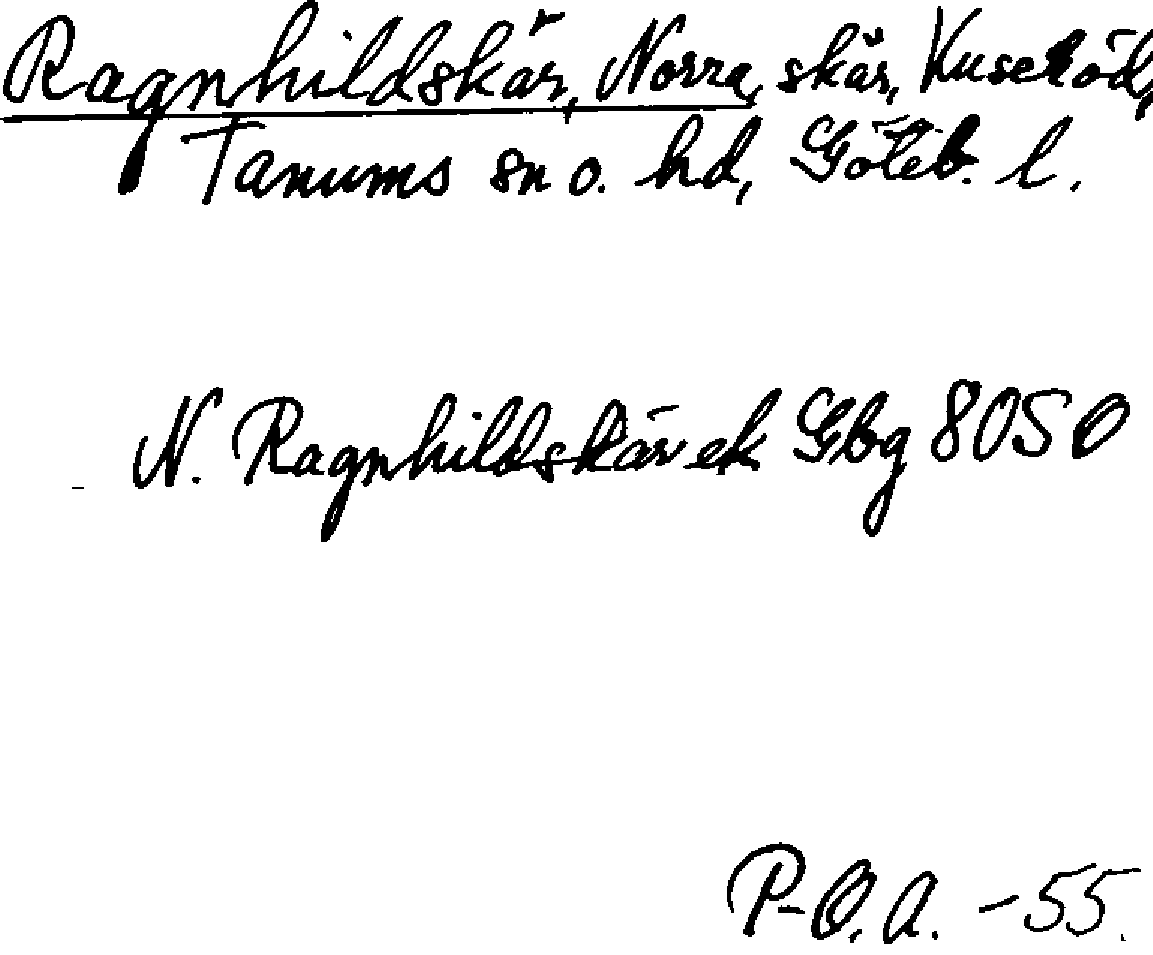 Ragnhildskär, Norra, skär, Kuseröd,
Tanums sn o. hd, Göteb. l.
N. Ragnhildskär ek Gbg 8050
P-O. A. -55.